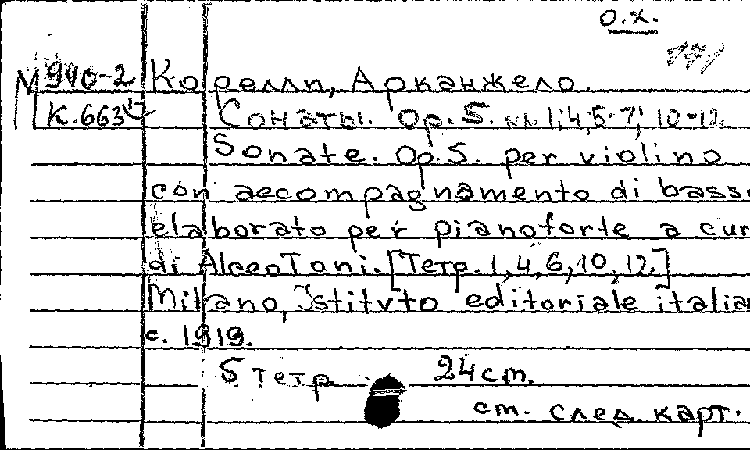 о.х.
М 940-2 Корелли, Арканжело.
К.663 Сонаты. Op. 5. №№ 1; 4; 5-7; 10-12.
Sonate. Op. 5. per violino
con accompagnamento di bass
elaborato per pianoforte a cur
di Alceo Toni. [Тетр. 1, 4, 6, 10, 12.]
Milano, Istituto editoriale italia
c. 1919.
5 тетр 24 cm.
см. след. карт.